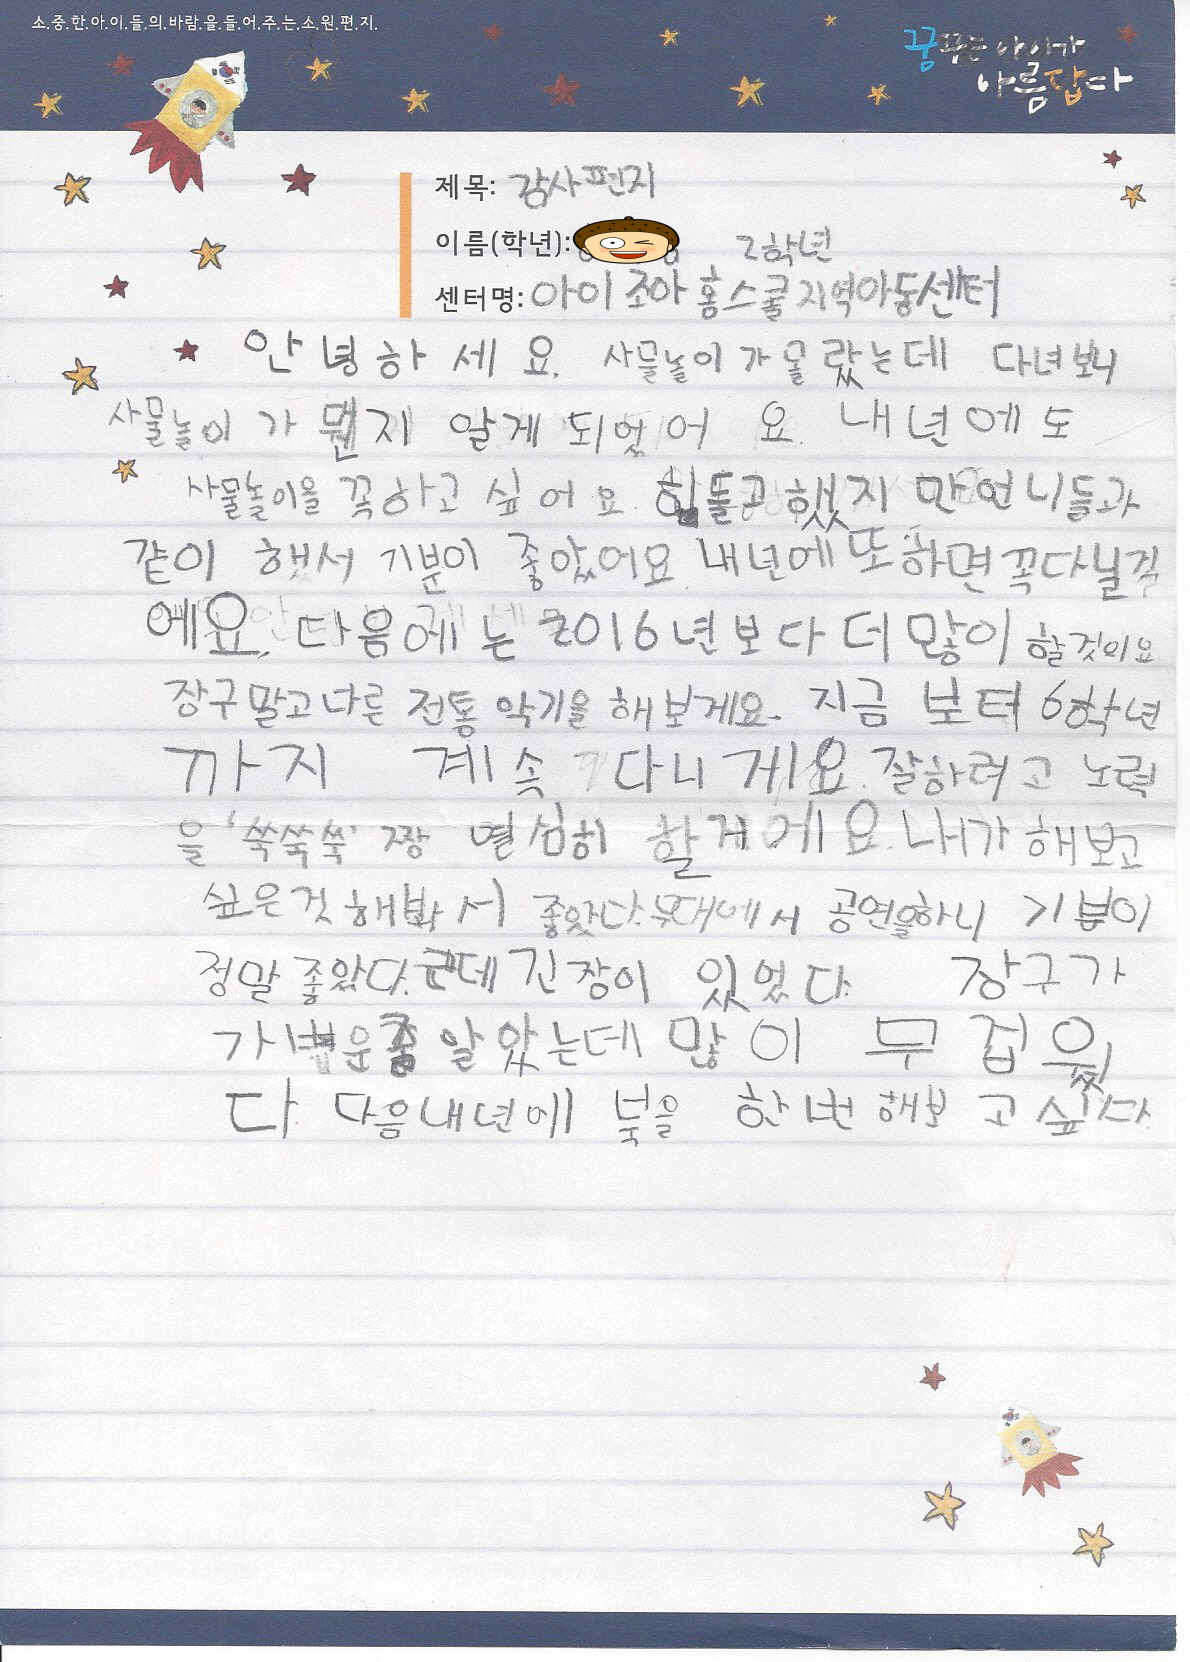 소.중.한.아.이.들.의.바.람.을.들.어.주.는.소.원.편.지.
꿈꾸는 아이가
아름답다
제목: 감사편지
이름(학년): 2학년
센터명: 아이조아홈스쿨지역아동센터
안녕하세요. 사물놀이가 몰랐는데 다녀보니
사물놀이가 뭔지 알게 되었어요. 내년에도
사물놀이을 꼭하고 싶어요. 힘들고했지만언니들과
같이 했서 기분이 좋았어요. 내년에 또하면 꼭다닐꺽
에요. 다음에는 2016년보다 더 많이 할것의요
장구말고다른 전통악기을 해보게요. 지금 보터 6학년
까지 계속 다니게요. 잘하려고 노력
을 '쑥쑥쑥' 짱 열심히 할게에요. 내가 해보고
싶은것 해봐서 좋았다. 무대에서 공연을하니 기분이
정말 좋았다. 근데 긴장이 있었다. 장구가
가벼운줄 알았는데 많이 무겁웠
다. 다음내년에 북을 한번 해보고싶다.